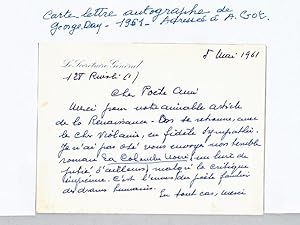 Carte lettre autographe de
George Day - 1961 - Adressée à A.
8 Mai 1961
Le Secrétaire Général
128 Rivoli (1)
Cher Poète Ami
Merci pour votre aimable article
de la Renaissance - Bas se retrouve, avec
le cher Violanis, en fidèle sympathie.
Je n'ai pas osé vous envoyer mon
roman La Colombe noire, un livre de
pitié d'ailleurs, malgré la critique
C'est l'œuvre du poète
des drames humains.
En tout cas, merci